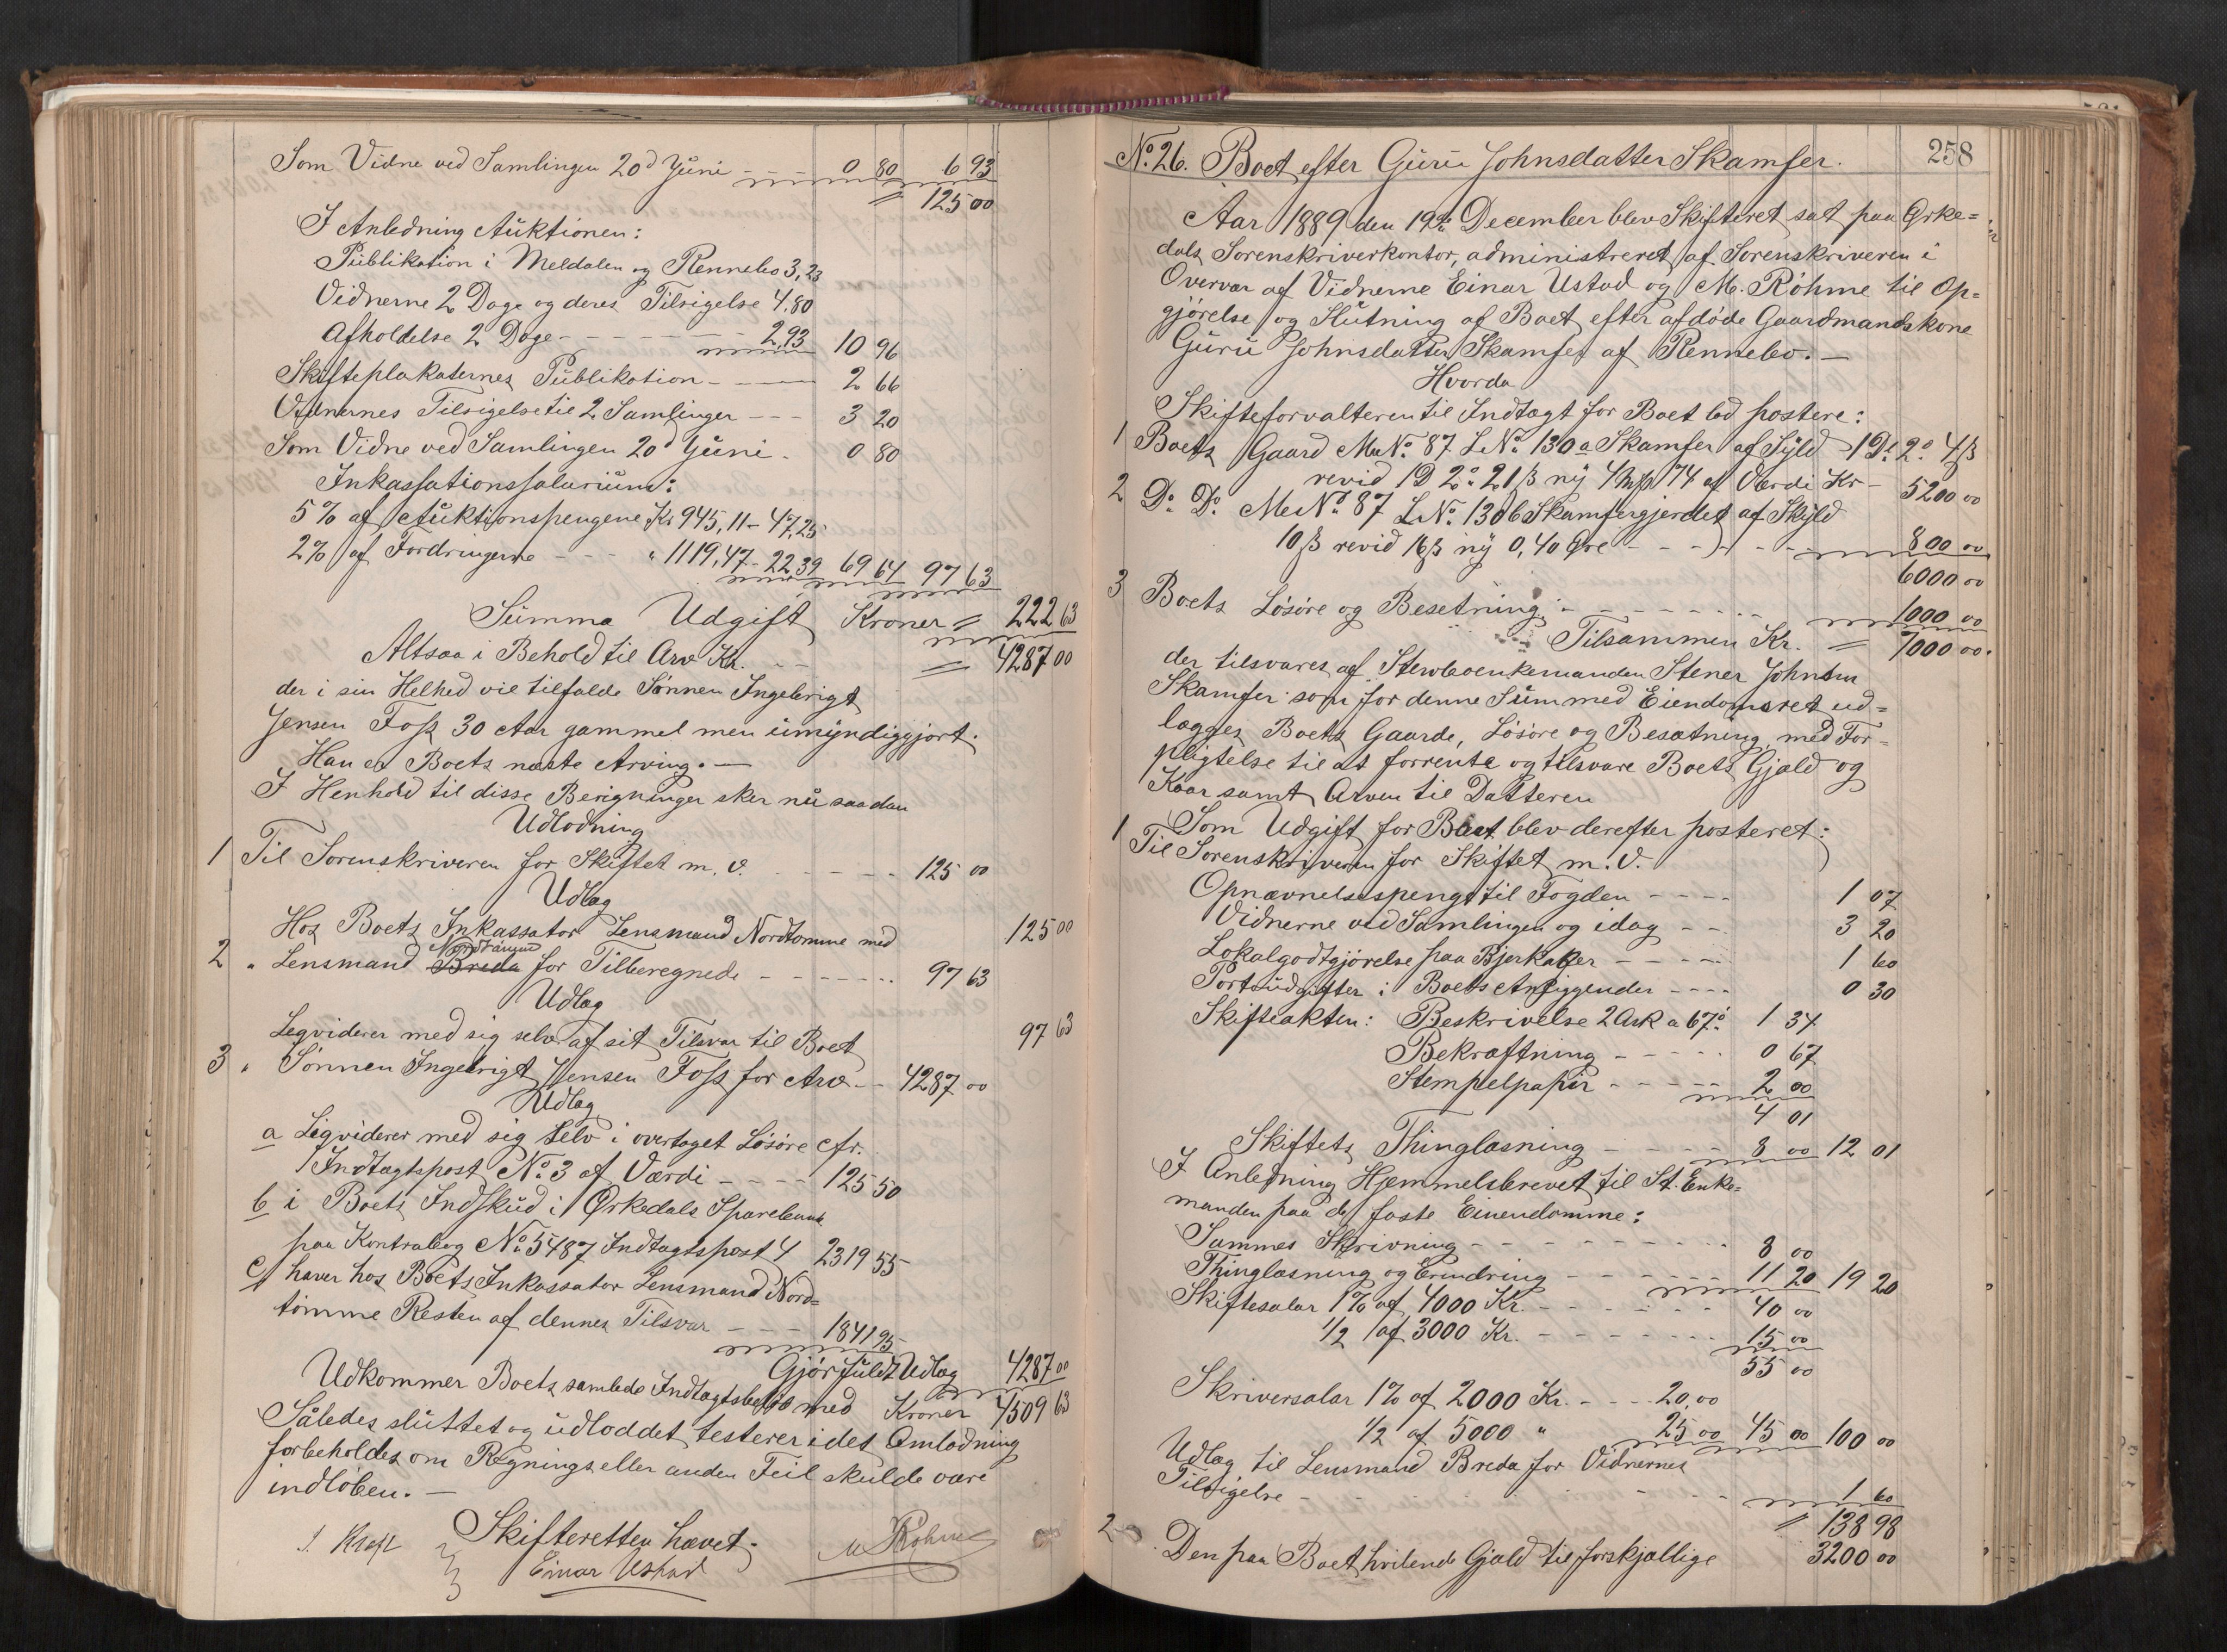 Som Vidne ved Samlingen 20d Juni - - - 0 80 6 93
= 125 00
I Anledning Auktionen:
Publikation i Meldalen og Rennebo 3,23
Vidnerne 2 Dage og deres Tilsigelse 4.80
Afholdelse 2 Dage - - - - - 2,93 10 96
Skifteplakaternes Publikation - - - 2 66
Vidnernes Tilsigelse til 2 Samlinger - - - 3 20
Som Vidne ved Samlingen 20d Juni - 0 80
Inkassationssalarium:
5 % af Auktionspengene Kr 945,11 - 47,25
2 % af Fordringerne - - - " 1119,47 - 22 39 69 64 97 63
Summa Udgift Kroner = 222 63
Altsaa i Behold til Arv Kr. - - = 4287 00
der i sin Helhed vil tilfalde Sønnen Ingebrigt
Jensen Foss 30 Aar gammel men umyndiggjort.
Han er Boets næste Arving. —
I Henhold til disse Berigninger sker nu saadan
Udlodning
1 Til Sorenskriveren for Skiftet m. v. - - - - - 125 00
Udlæg
Hos Boets Inkassator Lensmand Nordtømme med 125 00
Nordtømme
2 " Lensmand Breda for Tilberegnede - - - - - 97 63
Udlæg
Leqviderer med sig selv af sit Tilsvar til Boet 97 63
3 " Sønnen Ingebrigt Jensen Foss for Arv - - 4287 00
Udlæg
a Liqviderer med sig selv i overtaget Løsøre cfr.
Indtægtspost No 3 af Værdi - - - - 125 50
b i Boets Indskud i Ørkedals Sparebank
paa Kontrabog No 5487 Indtægtspost 4 2319 55
c, haver hos Boets Inkassator Lensmand Nord=
tømme Resten af dennes Tilsvar - - - 1841 95
Gjør fuldt Udlæg 4287 00
Udkommer Boets samlede Indtægtsbeløb med Kroner 4509 63
Således sluttet og udloddet testerer idet Omlodning
forbeholdes om Regnings eller anden Feil skulde være
indløben. —
Skifteretten hævet.
Einar Ustad M Røhme
258
No 26. Boet efter Guru Johnsdatter Skamfer.
Aar 1889 den 19de December blev Skifteret sat paa Ørke=
dals Sorenskriverkontor, administreret af Sorenskriveren i
Overvær af Vidnerne Einar Ustad og M. Röhme til Op=
gjørelse og Slutning af Boet efter afdøde Gaardmandskone
Guru Johnsdatter Skamfer af Rennebo. —
Hvorda
Skifteforvalteren til Indtægt for Boet lod postere:
1 Boets Gaard Me No 87 L No 130 a Skamfer af Skyld 1 D. 2 o. 4 ß
revid 1 D 2 o. 21 ß ny 4 Mk 74 af Værdi Kr - 5200 00
2 Do Do Me No 87 L No 130 b Skamfergjerdet af Skyld
10 ß revid 16 ß ny 0,40 Øre - - - - - - 800 00
6000 00
3 Boets Løsøre og Besetning - - - - - - 1000 00
Tilsammen Kr. = 7000 00.
der tilsvares af Stervboenkemanden Stener Johnsen
Skamfer som for denne Sum med Eiendomsret ud=
lægges Boets Gaarde, Løsøre og Besætning med For=
pligtelse til at forrente og tilsvare Boets Gjæld og
Kaar samt Arven til Datteren
Som Udgift for Boet blev derefter posteret:
1 Til Sorenskriveren for Skiftet m. v.
Opnævnelsespenge til Fogden - - - - 1 07
Vidnerne ved Samlingen og idag - - 3 20
Lokalgodtgjørelse paa Bjerkaker - - - - 1 60
Portoudgifter i Boets Anliggender - - - - 0 30
Skifteakten: Beskrivelse 2 Ark a 67 ø 1 34
Bekræftning - - - - - 0 67
Stempelpapir - - - - - 2 00
4 01
Skiftets Thinglæsning - - - - 8 00 12 01
I Anledning Hjemmelsbrevet til St. Enke=
manden paa de faste Eiendomme:
Sammes Skrivning - - - - - - - 8 00
Thinglæsning og Erindring - - - - - 11 20 19 20
Skiftesalar 1 % af 4000 Kr. - - - - - - 40 00
1/2 af 3000 Kr. - - - - - - - 15 00
55 00
Skriversalar 1 % af 2000 Kr. - - - 20,00
1/2 af 5000 " 25 00 45 00 100 00
Udlæg til Lensmand Breda for Vidnernes
Tilsigelse - - - - - - - - 1 60
= 138 98
2 Den paa Boet hvilende Gjæld til forskjællige 3200 00